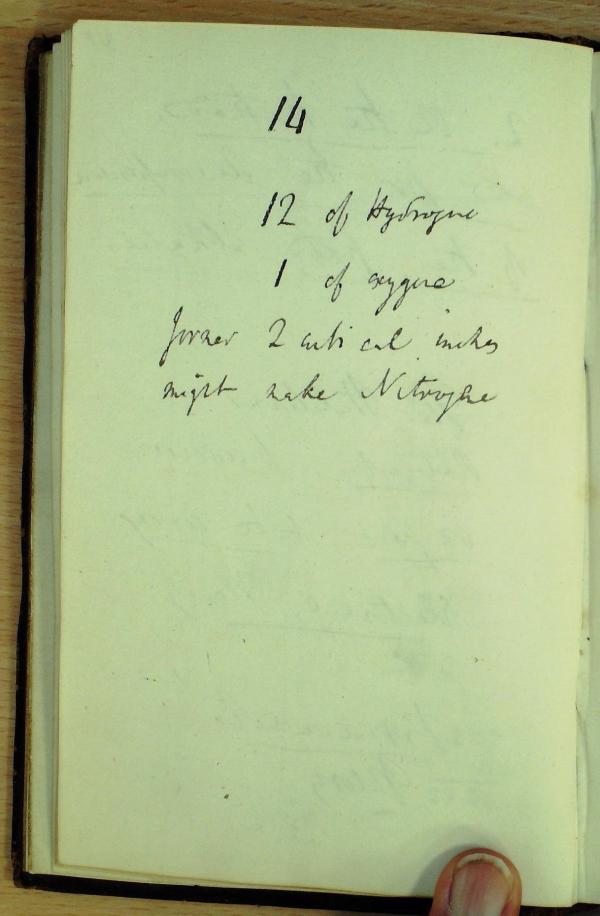 14
12 of Hydrogene
1 of oxygene
former 2 cubical inches
might make Nitrogene